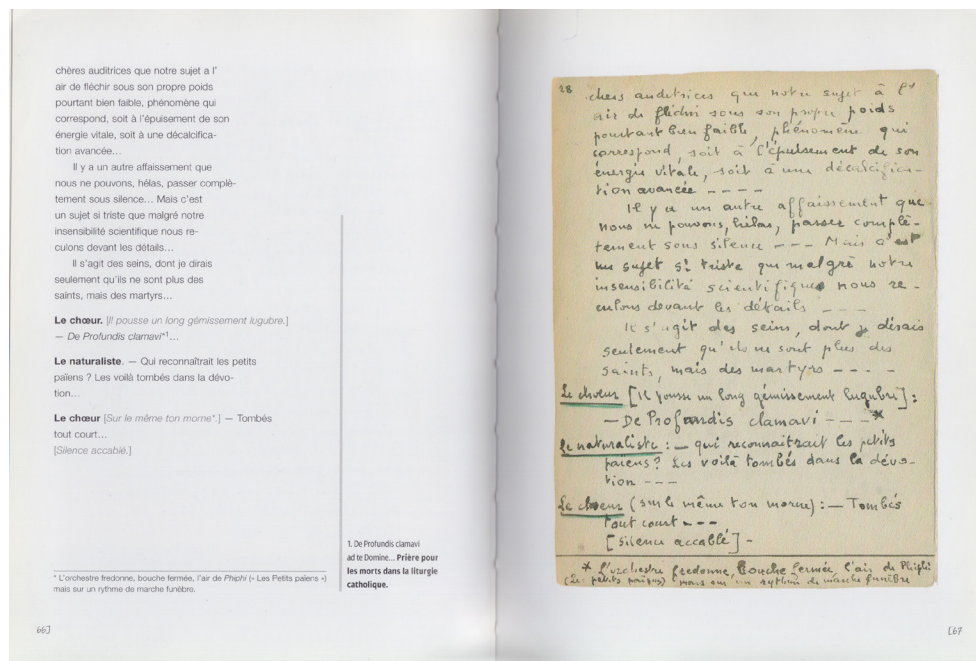 chères auditrices que notre sujet a l'
air de fléchir sous son propre poids
pourtant bien faible, phénomène qui
correspond, soit à l'épuisement de son
énergie vitale, soit à une décalcifica-
tion avancée...
Il y a un autre affaissement que
nous ne pouvons, hélas, passer complè-
tement sous silence... Mais c'est
un sujet si triste que malgré notre
insensibilité scientifique nous re-
culons devant les détails...
Il s'agit des seins, dont je dirais
seulement qu'ils ne sont plus des
saints, mais des martyrs...
Le chœur. [Il pousse un long gémissement lugubre.]
— De Profundis clamavi*¹...
Le naturaliste. — Qui reconnaîtrait les petits
païens ? Les voilà tombés dans la dévo-
tion...
Le chœur [Sur le même ton morne*.] — Tombés
tout court...
[Silence accablé.]
1. De Profundis clamavi
ad te Domine... Prière pour
les morts dans la liturgie
catholique.
* L'orchestre fredonne, bouche fermée, l'air de Phiphi (« Les Petits païens »)
mais sur un rythme de marche funèbre.
66]
28
chers auditrices que notre sujet à l'
air de fléchir sous son propre poids
pourtant bien faible, phénomène qui
correspond, soit à l'épuisement de son
énergie vitale, soit à une décalcifica-
tion avancée ----
Il y a un autre affaissement que
nous ne pouvons, hélas, passer complè-
tement sous silence --- Mais c'est
un sujet si triste que malgré notre
insensibilité scientifique nous re-
culons devant les détails ---
Il s'agit des seins, dont je dirais
seulement qu'ils ne sont plus des
saints, mais des martyrs ----
Le chœur [Il pousse un long gémissement lugubre] :
— De Profundis clamavi ---*
Le naturaliste : — qui reconnaitrait les petits
païens ? Les voilà tombés dans la dévo-
tion ---
Le chœur (sur le même ton morne) : — Tombés
tout court ---
[Silence accablé] -
* L'orchestre fredonne, bouche fermée, l'air de Phiphi
(Les petits païens) mais sur un rythme de marche funèbre
[67